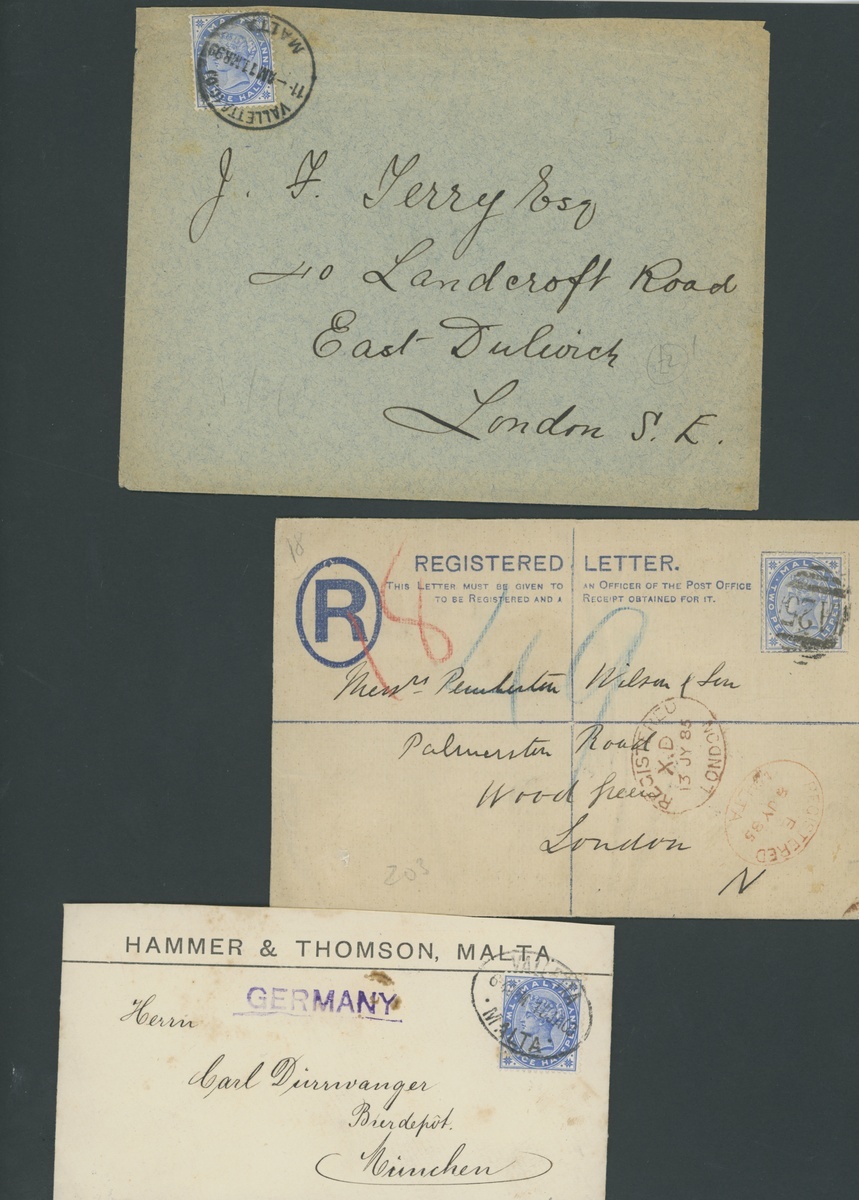 MALTA
VALLETTA
J. F. Terry Esq
40 Landcroft Road
East Dulwich
London S. E.
18
R
REGISTERED LETTER.
THIS LETTER MUST BE GIVEN TO AN OFFICER OF THE POST OFFICE
TO BE REGISTERED AND A RECEIPT OBTAINED FOR IT.
MALTA
A25
Messrs Pemberton Wilson & Son
Palmerston Road
Wood Green
London
N
REGISTERED
X.D
13 JY 85
LONDON
REGISTERED
E
5 JY 85
MALTA
203
HAMMER & THOMSON, MALTA.
GERMANY
VALLETTA
MALTA
MALTA
Herrn
Carl Dürrwanger
Bierdepôt.
München